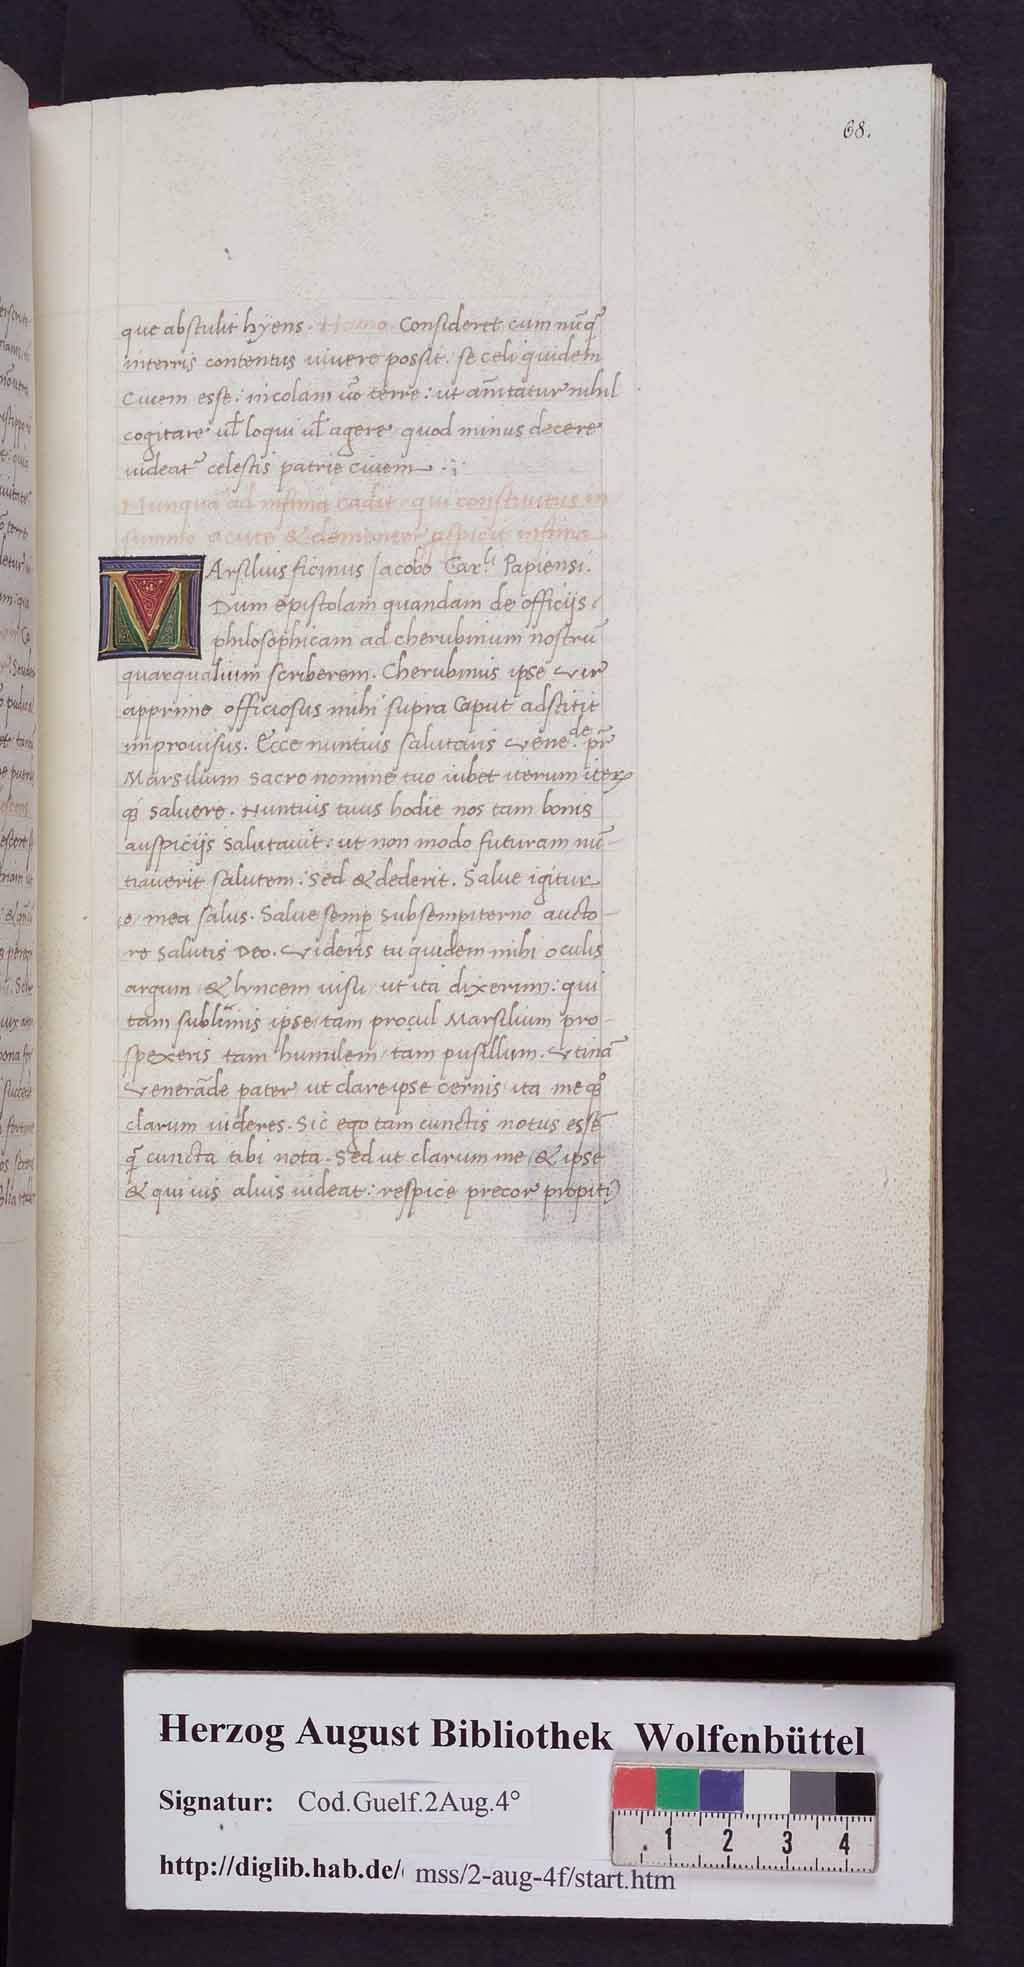 68.
que abstulit hyens. Homo. Consideret cum nūq̄
interris contentus vivere possit: se celi quidem
Civem esse: incolam ṽo terre: ut am̄tatur nihil
cogitare ul̄ loqui ul̄ agere quod minus decere
videat᷑ celestis patrie civem
Nunquā ad infima cadit qui constitutus in
summo acute & clementer aspicit infima
MArsilius ficinus Jacobo Carˡⁱ Papiensi.
Dum epistolam quandam de officijs
philosophicam ad cherubinium nostrū
quarqualium scriberem. Cherubinus ipse vir
apprime officiosus mihi supra Caput adstitit
improvisus. Ecce nuntius salutaris vene.ᵈᵉ pr̄
Marsilium sacro nomine tuo iubet iterum iterꝝ
q; salvere. Nuntius tuus hodie nos tam bonis
auspicijs salutavit: ut non modo futuram nū-
tiaverit salutem: sed & dederit. Salve igitur
o mea salus. Salve semꝑ sub sempiterno aucto-
re salutis Deo. Videris tu quidem mihi oculis
argum & lyncem visu ut ita dixerim: qui
tam sublimis ipse tam procul Marsilium pro-
spexeris tam humilem, tam pusillum. Utinā
Venerāde pater ut clare ipse cernis ita me q̊
clarum videres. Sic ego tam cunctis notus essē
q̄ cuncta tibi nota. Sed ut clarum me & ipse
& qui vis alius videat: respice precor propiti9
Herzog August Bibliothek Wolfenbüttel
Signatur: Cod.Guelf.2Aug.4°
http://diglib.hab.de/ mss/2-aug-4f/start.htm
1 2 3 4